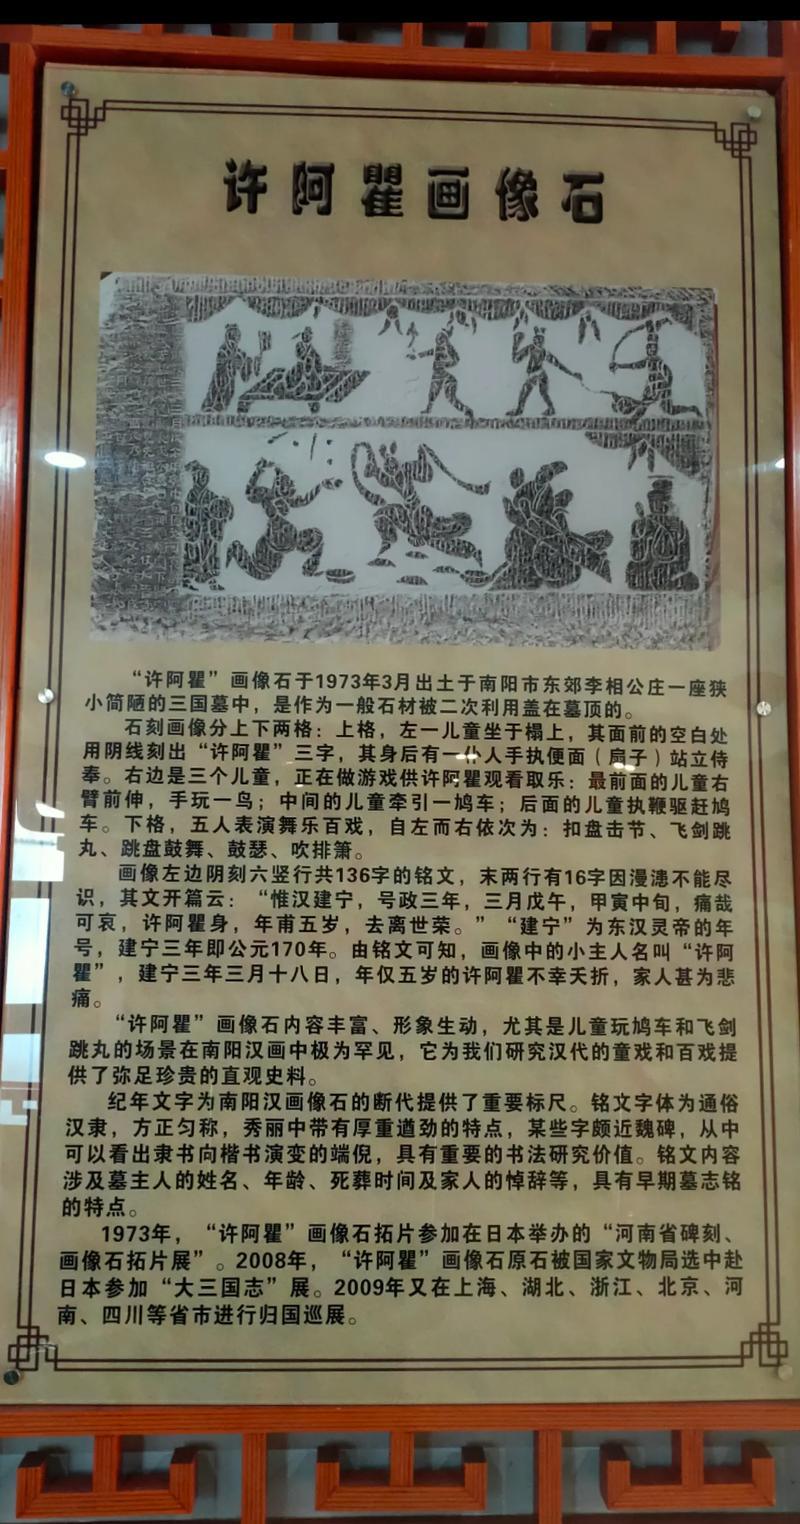 许阿瞿画像石
“许阿瞿”画像石于1973年3月出土于南阳市东郊李相公庄一座狭
小简陋的三国墓中，是作为一般石材被二次利用盖在墓顶的。
石刻画像分上下两格：上格，左一儿童坐于榻上，其面前的空白处
用阴线刻出“许阿瞿”三字，其身后有一仆人手执便面（扇子）站立侍
奉。右边是三个儿童，正在做游戏供许阿瞿观看取乐：最前面的儿童右
臂前伸，手玩一鸟；中间的儿童牵引一鸠车；后面的儿童执鞭驱赶鸠
车。下格，五人表演舞乐百戏，自左而右依次为：扣盘击节、飞剑跳
丸、跳盘鼓舞、鼓瑟、吹排箫。
画像左边阴刻六竖行共136字的铭文，末两行有16字因漫漶不能尽
识，其文开篇云：“惟汉建宁，号政三年，三月戊午，甲寅中旬，痛哉
可哀，许阿瞿身，年甫五岁，去离世荣。”“建宁”为东汉灵帝的年
号，建宁三年即公元170年。由铭文可知，画像中的小主人名叫“许阿
瞿”，建宁三年三月十八日，年仅五岁的许阿瞿不幸夭折，家人甚为悲
痛。
“许阿瞿”画像石内容丰富、形象生动，尤其是儿童玩鸠车和飞剑
跳丸的场景在南阳汉画中极为罕见，它为我们研究汉代的童戏和百戏提
供了弥足珍贵的直观史料。
纪年文字为南阳汉画像石的断代提供了重要标尺。铭文字体为通俗
汉隶，方正匀称，秀丽中带有厚重遒劲的特点，某些字颇近魏碑，从中
可以看出隶书向楷书演变的端倪，具有重要的书法研究价值。铭文内容
涉及墓主人的姓名、年龄、死葬时间及家人的悼辞等，具有早期墓志铭
的特点。
1973年，“许阿瞿”画像石拓片参加在日本举办的“河南省碑刻、
画像石拓片展”。2008年，“许阿瞿”画像石原石被国家文物局选中赴
日本参加“大三国志”展。2009年又在上海、湖北、浙江、北京、河
南、四川等省市进行归国巡展。